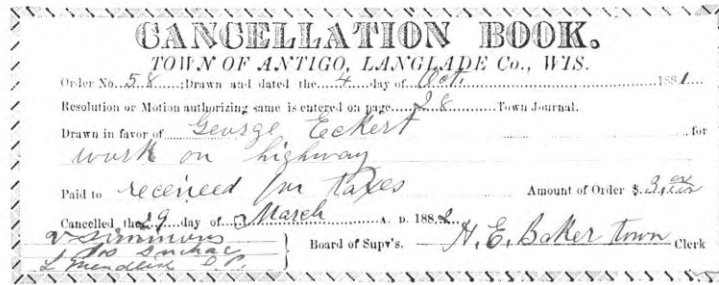 CANCELLATION BOOK.
TOWN OF ANTIGO, LANGLADE Co., WIS.
Order No. 58 ; Drawn and dated the 4 day of Oct. 1881
Resolution or Motion authorizing same is entered on page 28 Town Journal.
Drawn in favor of George Eckert for
work on highway
Paid to received for taxes Amount of Order $ 3.
Cancelled the 29 day of March A. D. 1882
V Simmons
Board of Supv's. H. E. Baker Town Clerk